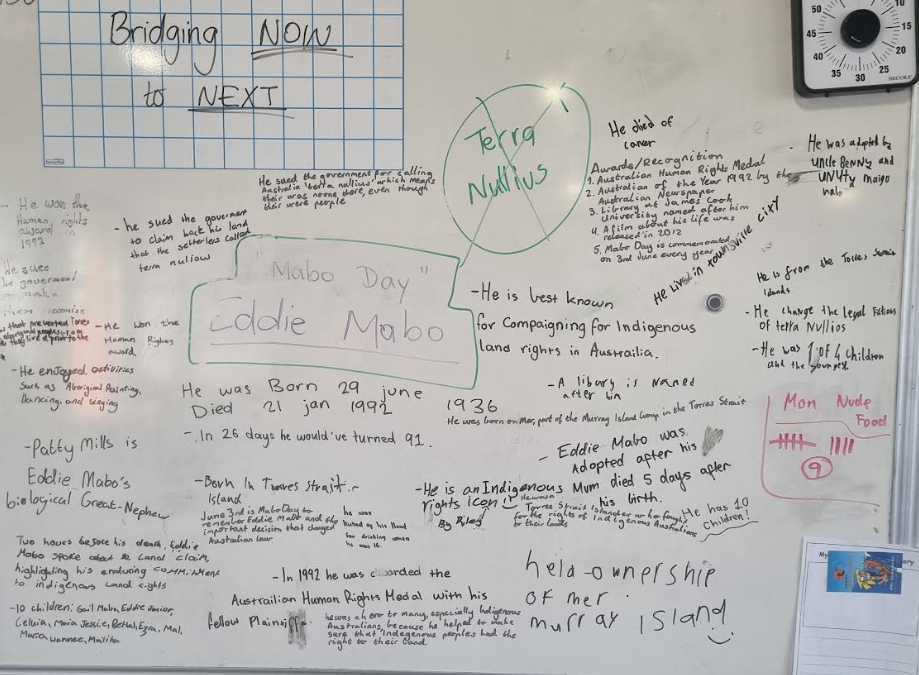 Bridging NOW
to NEXT
50
45
40
35
30
25
20
15
10
SECURE
Terra
Nullius
He died of
cancer
Awards/Recognition
1. Australian Human Rights Medal
2. Australian of the Year 1992 by the
Australian Newspaper
3. Library at James Cook
University named after him
4. A film about his life was
released in 2012
5. Mabo Day is commemorated
on 3rd June every year
He was adopted by
uncle Benny and
He lived in townsville city
He is from the Torres Strait
Islands
- He change the legal fictions
of terra Nullios
- He was 1 of 4 children
and the youngest
He sued the government for calling
Australia 'terra nullius' which means
their was no one there, even though
their were people
- He won the
Human rights
award in
1992
- he sued the goverment
to claim back his land
that the setterless called
term nuliow
"Mabo Day"
Eddie Mabo
- He won the
Human Righes
award.
- He enjoyed activities
Such as Aboriginal Painting,
Dancing, and singing
- He is best known
for Compaigning for Indigenous
land rights in Austrailia.
- A libary is Named
after him
He was Born 29 june 1936
Died 21 jan 1992
He was born on Mer, part of the Murray Island Group in the Torres Strait
- In 26 days he would've turned 91.
- Eddie Mabo was
Adopted after his
Mum died 5 days after
his birth.
Mon Nude
Food
9
- Patty Mills is
Eddie Mabo's
biological Great-Nephew
- Born In Torres Strait
Island
June 3rd is Mabo Day to
remember Eddie Mabo and the
important decision that changed
Australian law
he was
kicked of his Island
for drinking when
he was 16.
- He is an Indigenous
rights icon!
By Riley
He was a
Torres Strait Islander who fought
for the rights of Indigenous Australians
to their lands
He has 10
children!
Two hours before his death, Eddie
Mabo spoke about the Land claim,
highlighting his enduing commitment
to indigenous land rights
- In 1992 he was awarded the
Austrailian Human Rights Medal with his
fellow Plaintiff
he was a hero to many, especially Indigenous
Australians, because he helped to make
sure that Indegenous peoples had the
right to their land
held ownership
of mer
murray island
- 10 children: Gail Mabo, Eddie Junior,
Celuia, Maria Jessie, Bethal, Ezra, Mal,
Marco, Wannee, Malita
My